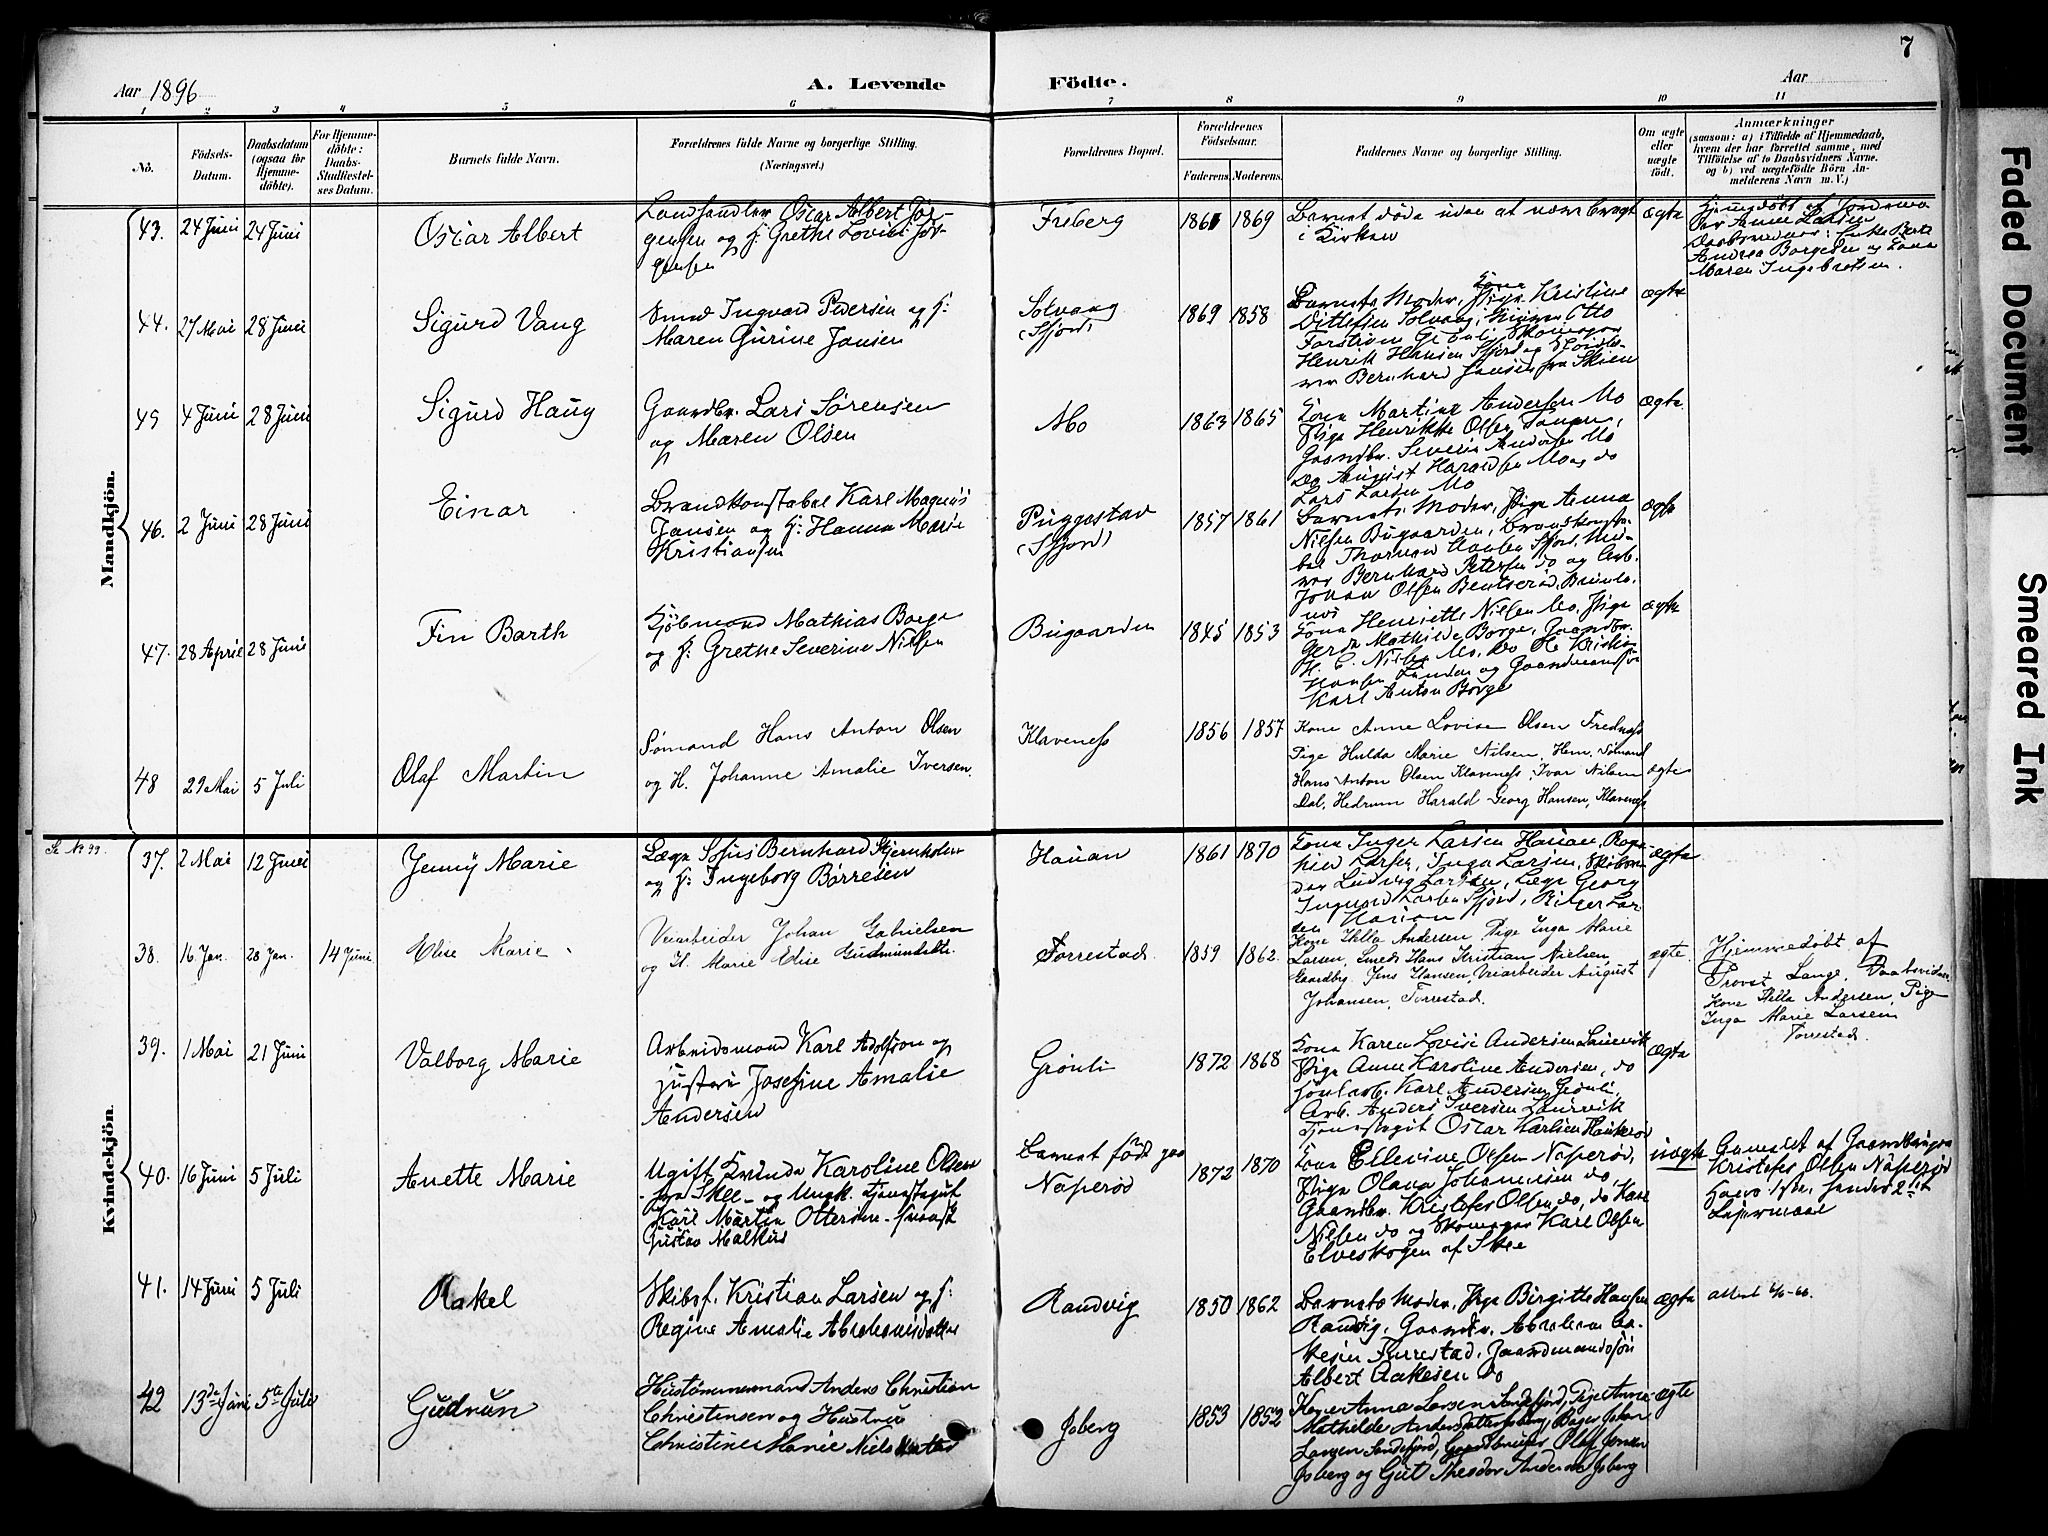 7
Aar 1896
A. Levende
Födte.
Aar
1 2 3 4 5 6 7 8 9 10 11
No.
Födsels-Datum.
Daabsdatum (ogsaa for Hjemme-döbte).
For Hjemme-döbte: Daabs-Stadfæstel-ses Datum.
Barnets fulde Navn.
Forældrenes fulde Navne og borgerlige Stilling. (Næringsvei.)
Forældrenes Bopæl.
Forældrenes Födselsaar.
Faderens. Moderens.
Faddernes Navne og borgerlige Stilling.
Om ægte eller uægte födt.
Anmærkninger
(saasom: a) i Tilfælde af Hjemmedaab, hvem der har forrettet samme, med Tilföielse af to Daabsvidners Navne. og b) ved uægtefödte Börn An-melderens Navn m. V.)
Mandkjön.
43. 24 Juni 24 Juni
Oscar Albert
Landhandler Oscar Albert Jør-
gensen og H: Grethe Lovise Jør-
gensen
Freberg
1861 1869
Barnet døde uden at være bragt
i Kirken
ægte
Hjemmedøbt af Jordemo
Andrea Borgesen og Kone
Maren Ingebretsen.
44. 27 Mai 28 Juni
Sigurd Vang
Smed Ingvard Pedersen og H:
Maren Gurine Jansen
Solvang
(Sfjord)
1869 1858
Barnets Moder, Pige Kristine
Ditlefsen Solvang,
Henrik Hansen Sfjord og
Bernhard Jansen fra Skien
ægte
45 4 Juni 28 Juni
Sigurd Haug
Gaardbr. Lars Sørensen
og Maren Olsen
Mo
1863 1865
Kone Martine Andersen Mo
Pige Henrikke Olsen
Gaardbr. Severin Andersen Mo
Do August Haraldsen Mo og do
Lars Larsen Mo
ægte.
46. 2 Juni 28 Juni
Einar
Brandkonstabel Karl Magnus
Jansen og H: Hanna Marie
Kristiansen
Puggestad
(Sfjord)
1857 1861
Barnets Moder, Pige Anna
Nilsen Bugaarden, Brandkonsta-
bel Thorvald Hansen Sfjord, Mu-
rer Bernhard Petersen do og Arb.
Johan Olsen Bentserød, Brunla-
nes
ægte
47. 28 April 28 Juni
Fin Barth
Kjøbmand Mathias Borge
og H: Grethe Severine Nilsen
Bugaarden
1845 1853
Kone Henriette Nilsen Mo, Pige
Gerda Mathilde Borge, Gaardbr.
H. C. Nilsen Mo, do H. Kristian
Hansen Lunden og Gaardmandssøn
Karl Anton Borge
ægte
48 29 Mai 5 Juli
Olaf Martin
Sømand Hans Anton Olsen
og H. Johanne Amalie Iversen.
Klaveness
1856 1857
Kone Anne Lovise Olsen Frednæss
Pige Hulda Marie Nilsen, Hem, Sømand
Hans Anton Olsen Klavenefs, Ivar Nilsen
Dal, Hedrum Harald Georg Hansen, Klavenefs
ægte
Kvindekjön.
37. 2 Mai 12 Juni
Jenny Marie
Læge Sofus Bernhard Stjernholm
og H: Ingeborg Børresen
Hauan
1861 1870
Kone Inger Larsen Hauan, Rag-
hild Larsen, Inga Larsen, Skibsre-
der Ludvig Larsen, Læge Georg
Ingvard Larsen Sfjord, Birger Lar-
sen Hauan
ægte
38. 16 Jan. 20 Jan. 14 Juni
Elise Marie
Veiarbeider Johan Gabrielsen
og H. Marie Elise Gudmundsdtr.
Forrestad
1859 1862.
Kone Hella Andersen, Pige Inga Marie
Larsen, Smed Hans Kristian Nielsen,
Gaardbg. Jens Hansen, Veiarbeider August
Johansen, Torrestad.
ægte.
Hjemmedøbt af
Provst Lange. Daabsvidner
Kone Hella Andersen, Pige
Inga Marie Larsen
Torrestad.
39. 1 Mai 21 Juni
Valborg Marie
Arbeidsmand Karl Adolfson og
Hustru Josefine Amalie
Andersen
Grønli
1872 1868
Kone Karen Lovise Andersen Laurvik
Pige Anne Karoline Andersen, do
Karl Andersen Grønli,
Arb. Anders Iversen Laurvik
Tjenestegut Oscar Karlsen Haukerød
ægte
40. 16 Juni 5 Juli
Anette Marie
Ugift Kvinde Karoline Olsen
fra Skee – og Ungk. Tjenestegut
Karl Martin Ottersen – svensk
Gustav Malkus
Barnet født paa
Naperød
1872 1870
Kone Ellevine Olsen Naperød,
Pige Olava Johannesen do,
Gaardbr. Kristofer Olsen do, do Hans
Nilsen do og Skomager Karl Olsen
Elveskogen af Skee
uægte
Anmeldt af Gaardbruger
Kristofer Olsen Naperød
Faders 1ste, Hendes 2det
Leiermaal
41. 14 Juni 5 Juli
Rakel
Skibsf. Kristian Larsen og H:
Regine Amalie Abrahamsdatter
Randvig
1850 1862
Barnets Moder, Pige Birgitte Hansen
Randvig, Gaardbr. Abraham Aa-
kesen Furrestad, Gaardmandssøn
Albert Aakesen do
ægte
42 13de Juni 5te Juli
Gudrun
Hustømmermand Anders Christian
Christensen og Hustru
Christine Marie Nielsdatter
Joberg
1853 1852
Kone Anna Larsen Sandefjord, Pige Anne
Mathilde Andersdatter Joberg, Bager Johan
Larsen Sandefjord, Gaardbruger Olaf Jansen
Joberg og Gut Theodor Andersen Joberg
ægte
Faded Document
Smeared Ink